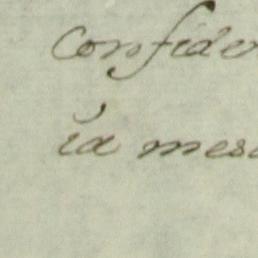 confider
ia mesa